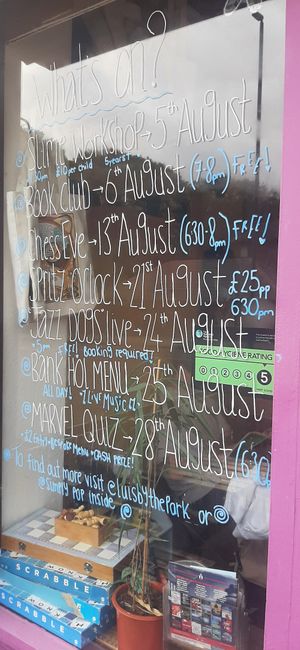 What's on?
Slime Workshop → 5th August
£10 per child 5years+
Book Club → 6th August (7-8pm) FREE!
Chess Eve → 13th August (630-8pm) FREE!
Spritz O'Clock → 21st August £25pp
630pm
Jazz Dogs Live → 24th August
5pm FREE! Booking required!
FOOD HYGIENE RATING
0 1 2 3 4 5
Bank Hol MENU → 25th August
ALL DAY! Live Music
@MARVEL QUIZ → 28th August (630
£2 Entry + Menu + CASH PRIZE!
To find out more visit @luisbythepark or
@simply pop inside
SCRABBLE
SCRABBLE